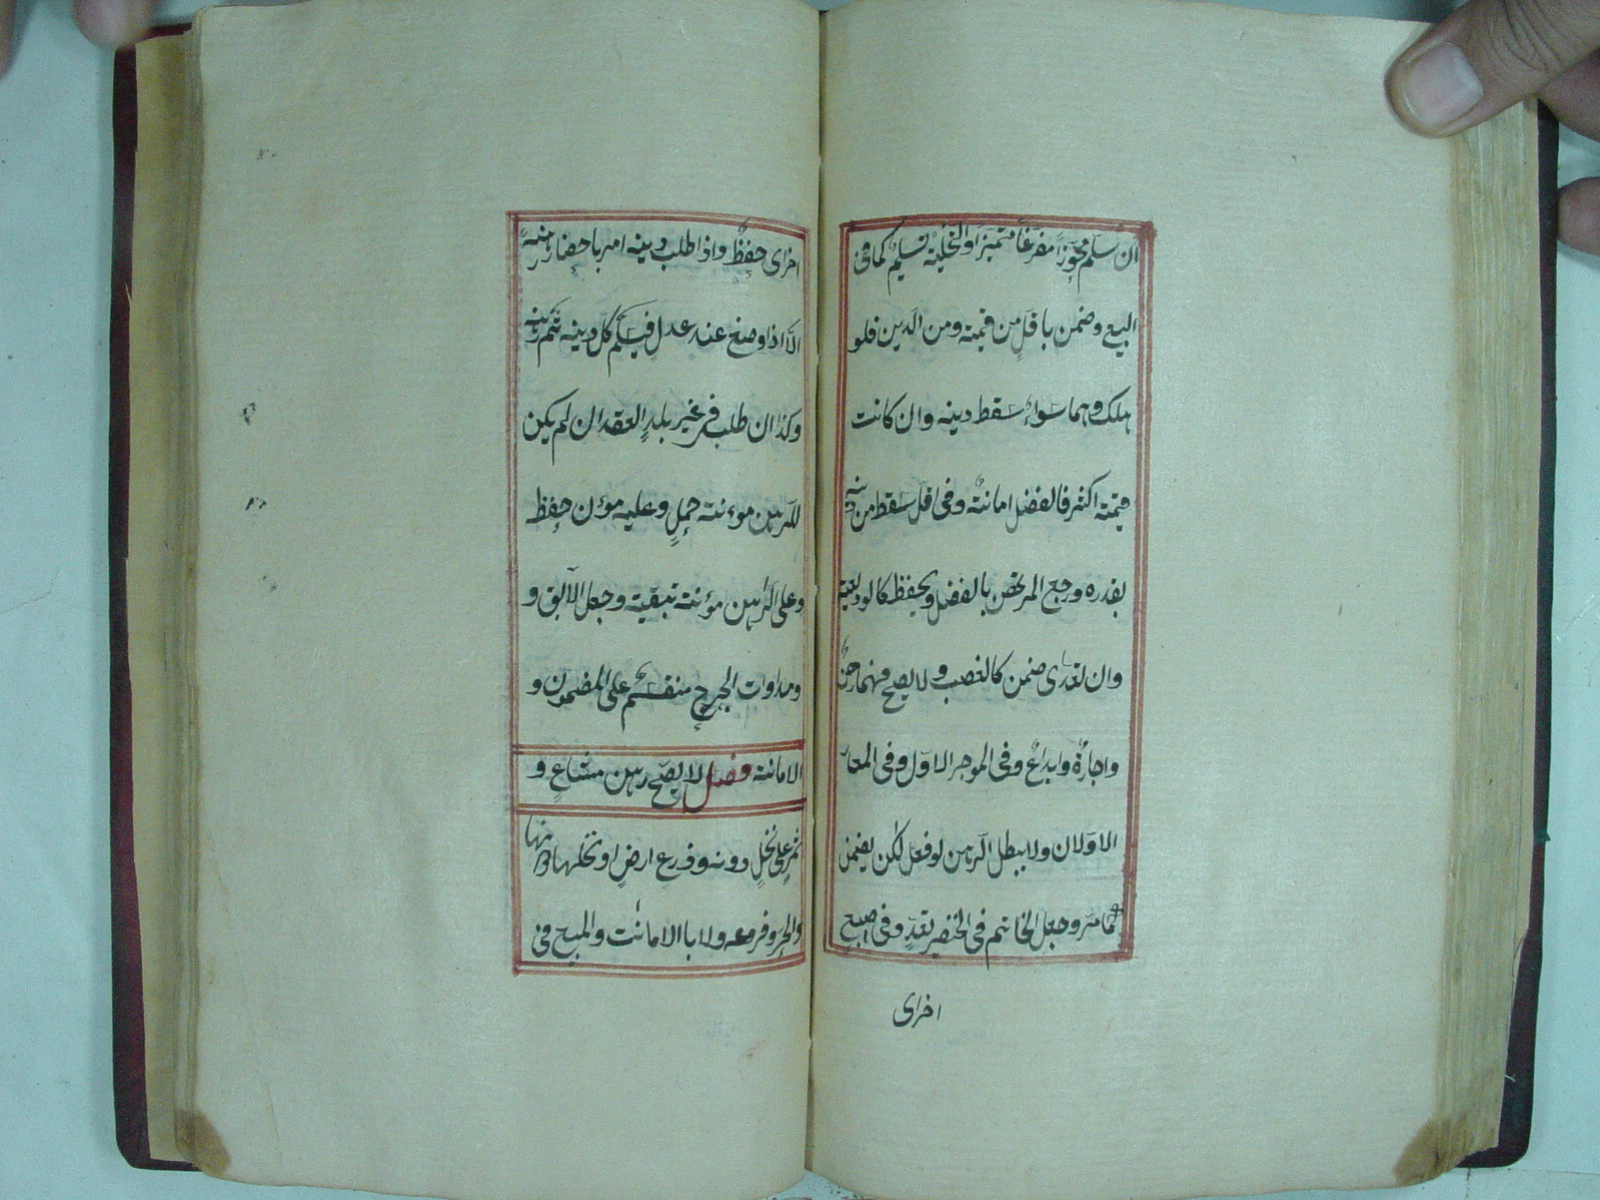 ان سلم محوزا مفرغا متميزا والتخلية تسليم كما فى
البيع وضمن باقل من قيمته ومن الدين فلو
هلك وهما سواء سقط دينه وان كانت
قيمته اكثر فالفضل امانة وفى اقل سقط من دينه
بقدره ورجع المرتهن بالفضل ويحفظ كالوديعة
وان تعدى ضمن كالغصب و لا يصح منهما رهن
واجارة وايداع وفى الموجر الاول وفى المعار
الاولان ولا يبطل الرهن لو فعل لكن يضمن
كما مر وجعل الخاتم فى الخنصر تعد وفى اصبع
اخراى
اخراى حفظ واذا طلب دينه امر باحضار رهنه
الا اذا وضع عند عدل فيسلم كل دينه ثم رهنه
وكذا ان طلب فى غير بلد العقد ان لم يكن
للرهن موءنته حمل وعليه موءن حفظ
وعلى الراهن مؤنته تبقيته وجعل الآبق و
ومداوات الجرح منقسم على المضمون و
الامانته فصل لا يصح رهن مشاع و
ثمر على نخل دونه وزرع ارض او نخلها دونها
والحر وفرعه ولا بالامانت والمبيع فى